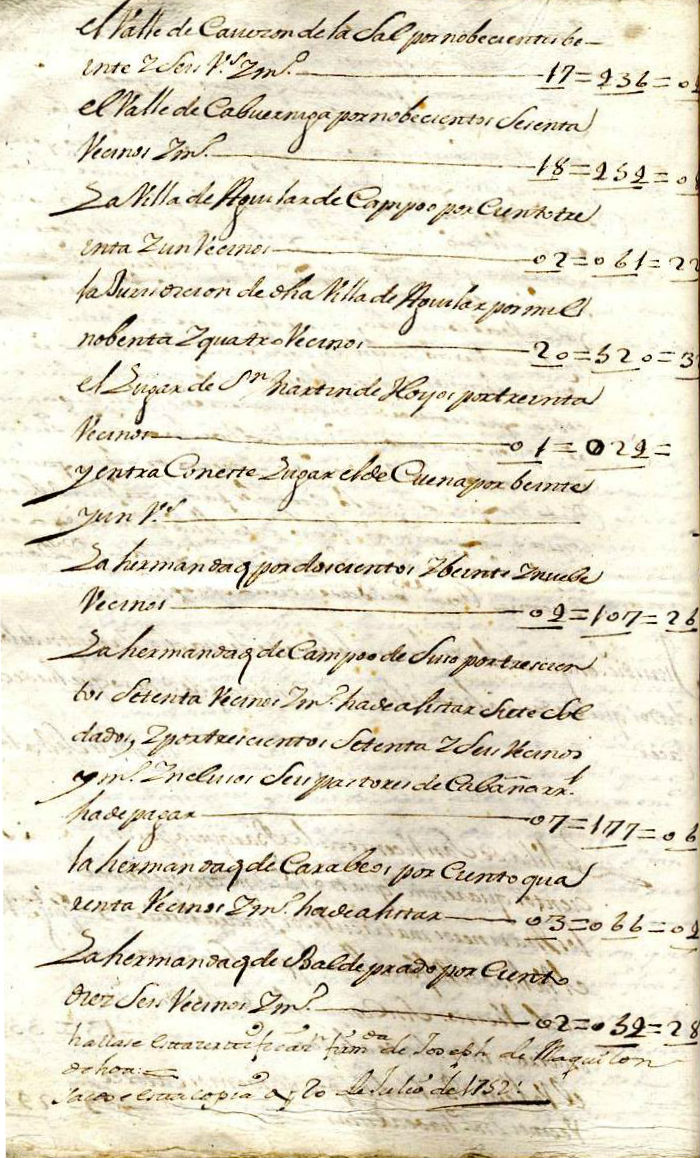 el Valle de Cavezon de la Sal por nobecientos be
inte Z Seis V.s Z m.o — 17=236=0
el Valle de Cabuerniga por nobecientos Sesenta
Vecinos Z m.o — 18=252=0
La Villa de Aguilar de Campoo por Ciento tre
inta Z un Vecinos — 02=061=22
la Jurisdicion de dha Villa de Aguilar por mil
nobenta Z quatro Vecinos — 20=520=3
el Lugar de S.n Martin de Hoyos por treinta
Vecinos — 01=029=
y entra Con este Lugar el de Cuena por beinte
y un V.s —
La hermandad por doscientos Z beinte Z nuebe
Vecinos — 02=107=26
La hermandad de Campoo de Suso por trescien
tos Setenta Vecinos Z m.o ha de alistar Siete Sol
dados, Z por trescientos Setenta Z Seis Vecinos
y m.o Inclusos Seis pastores de Cabaña rr.l
ha de pagar — 07=177=06
la hermandad de Carabeos por Ciento qua
renta Vecinos Z m.o ha de alistar — 03=066=02
La hermandad de Baldeprado por Ciento
diez Seis Vecinos Z m.o — 02=032=28
hallase esta firm.da de Joseph de
ochoa =
Sacose esta copia a 20 de Julio de 1752